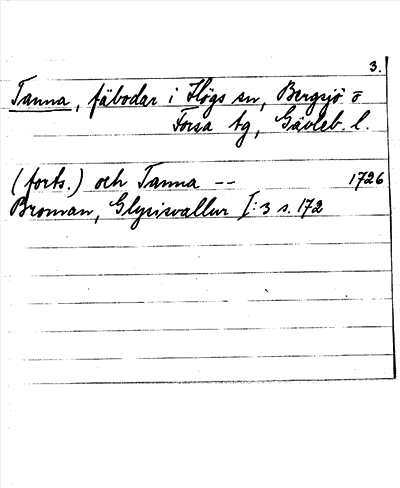 3.
Tanna, fäbodar i Högs sn, Bergsjö o
Forsa tg, Gävleb. l.
(forts.) och Tanna -- 1726
Broman, Glysisvallur I:3 s. 172